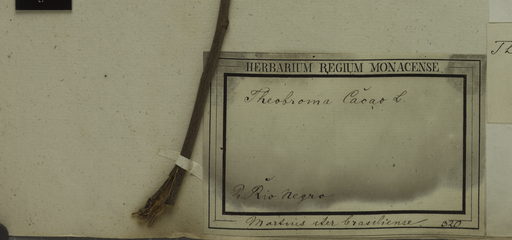 HERBARIUM REGIUM MONACENSE
Theobroma Cacao L
Rio Negro
Martius iter brasiliense 520